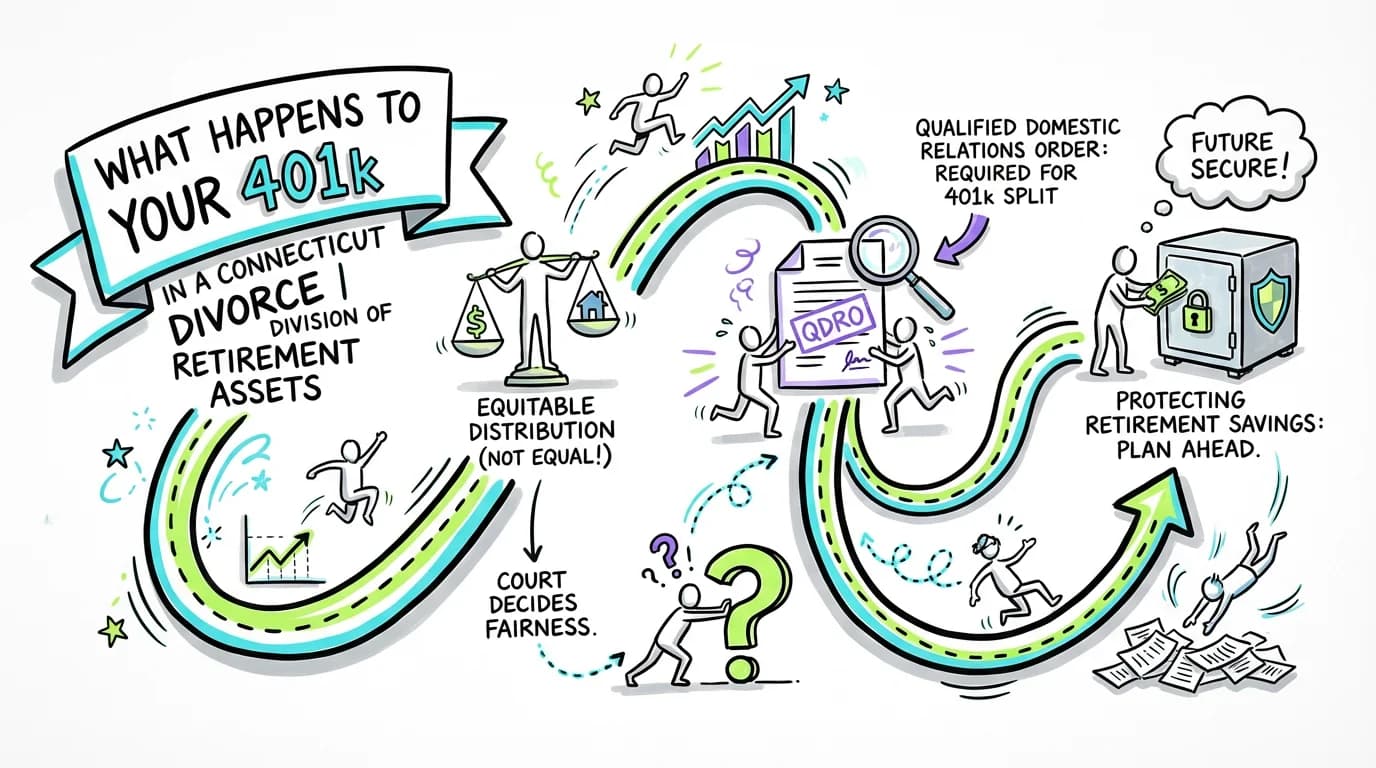 WHAT HAPPENS TO
YOUR 401k
IN A CONNECTICUT
DIVORCE |
DIVISION OF
RETIREMENT
ASSETS
EQUITABLE
DISTRIBUTION
(NOT EQUAL!)
COURT
DECIDES
FAIRNESS.
QUALIFIED DOMESTIC
RELATIONS ORDER:
REQUIRED FOR
401k SPLIT
QDRO
FUTURE
SECURE!
PROTECTING
RETIREMENT SAVINGS:
PLAN AHEAD.